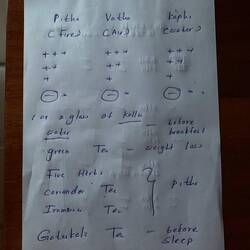 Pitha Vatha Kapha
(Fire) (Air) (water)
+++ +++ +++
++ ++ ++
+ + +
⊖ ⊖ ⊖
glass of
water before breakfast
green Tea - weight loss
Five Herbs
coriander Tea } pitha
Tea
Gotukola Tea - before sleep